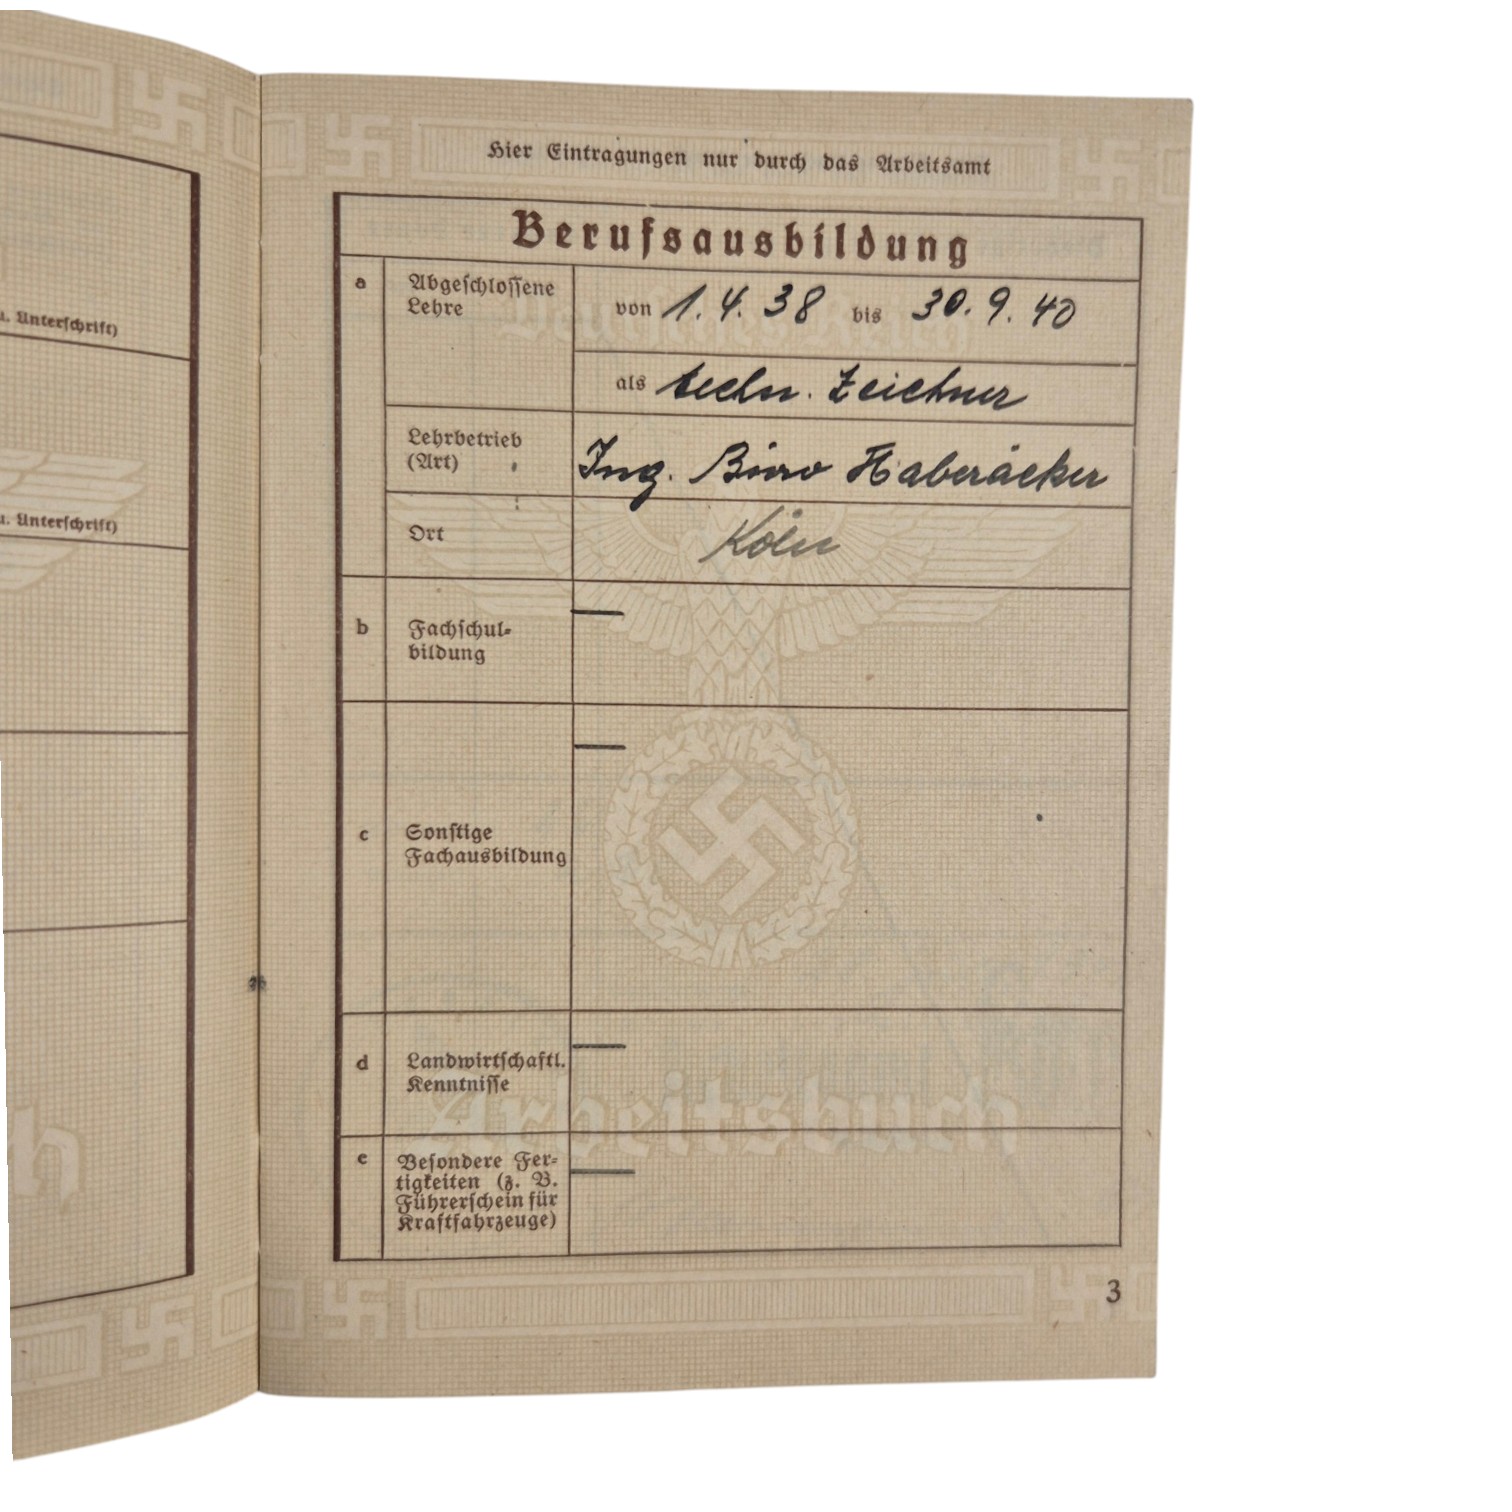 u. Unterschrift)
u. Unterschrift)
Hier Eintragungen nur durch das Arbeitsamt
Berufsausbildung
a Abgeschlossene
Lehre
von 1.4.38 bis 30.9.40
als techn. Zeichner
Lehrbetrieb
(Art)
Ing. Büro Haberäcker
Ort Köln
b Fachschul-
bildung
—
c Sonstige
Fachausbildung
—
d Landwirtschaftl.
Kenntnisse
—
e Besondere Fer-
tigkeiten (z. B.
Führerschein für
Kraftfahrzeuge)
—
Deutsches Reich
Arbeitsbuch
3